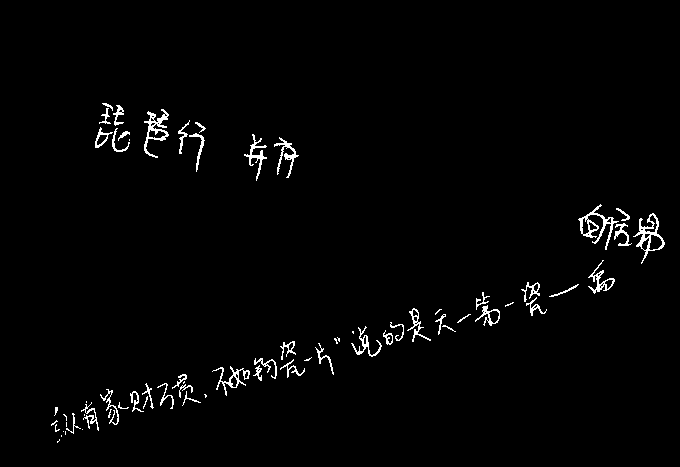 琵琶行 并序
白居易
纵有家财万贯,不如钧瓷一片"说的是天一第一瓷一